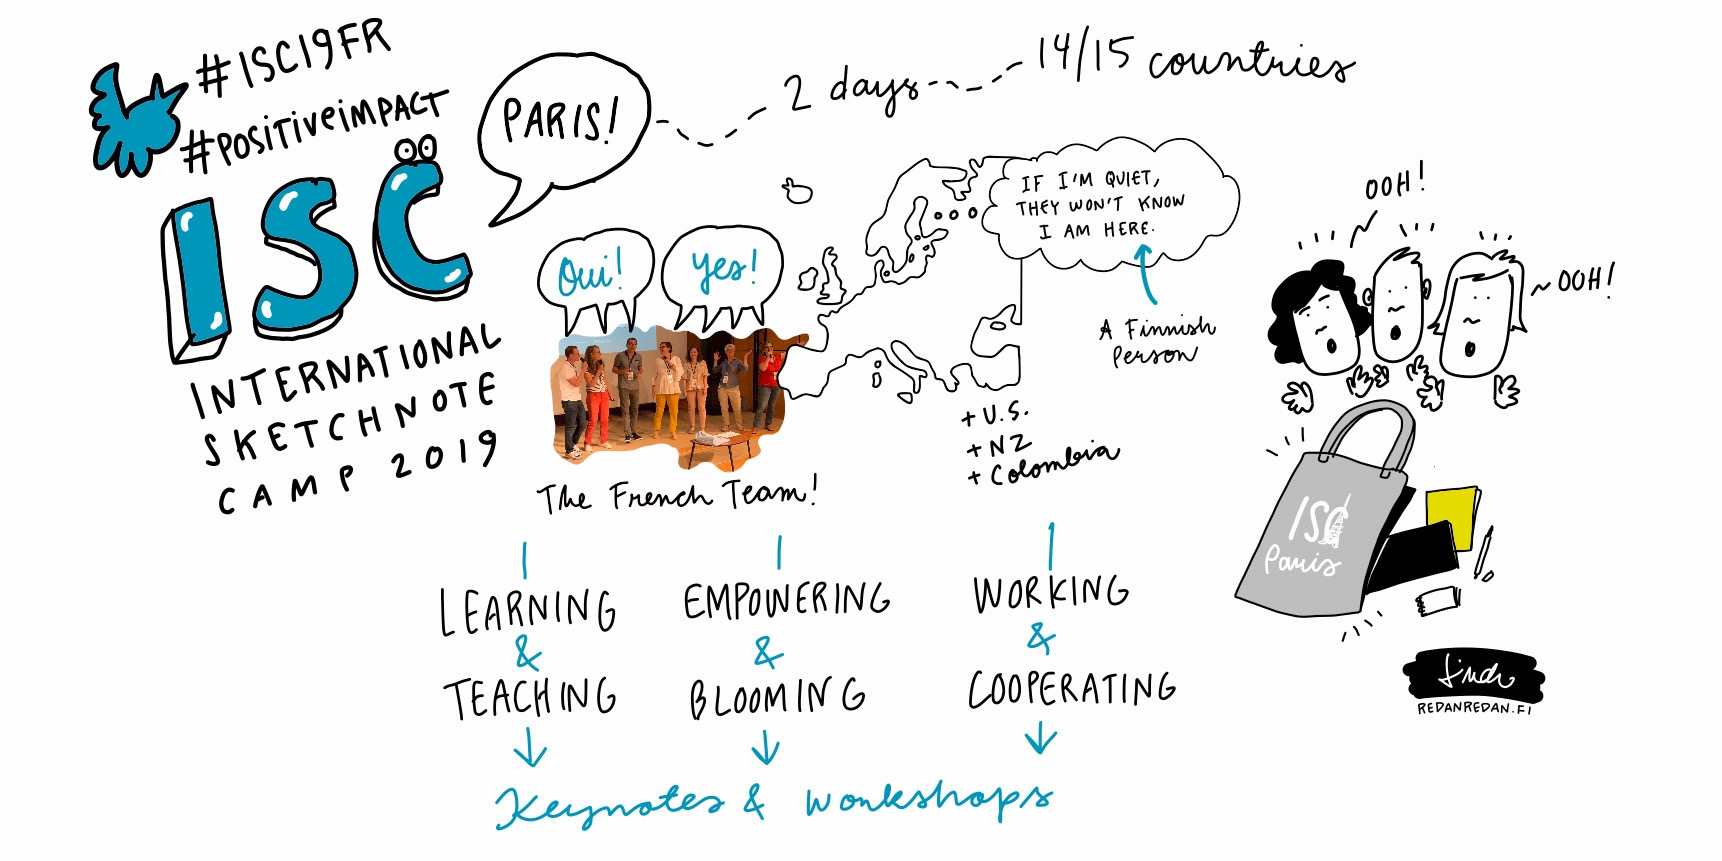 #ISC19FR
#POSITIVEIMPACT
ISC
INTERNATIONAL
SKETCHNOTE
CAMP 2019
PARIS!
2 days
14/15 countries
Oui!
Yes!
The French Team!
IF I'M QUIET,
THEY WON'T KNOW
I AM HERE.
A Finnish
Person
+ U.S.
+ NZ
+ Colombia
OOH!
OOH!
ISC
Paris
LEARNING
&
TEACHING
EMPOWERING
&
BLOOMING
WORKING
&
COOPERATING
Keynotes & workshops
REDANREDAN.FI